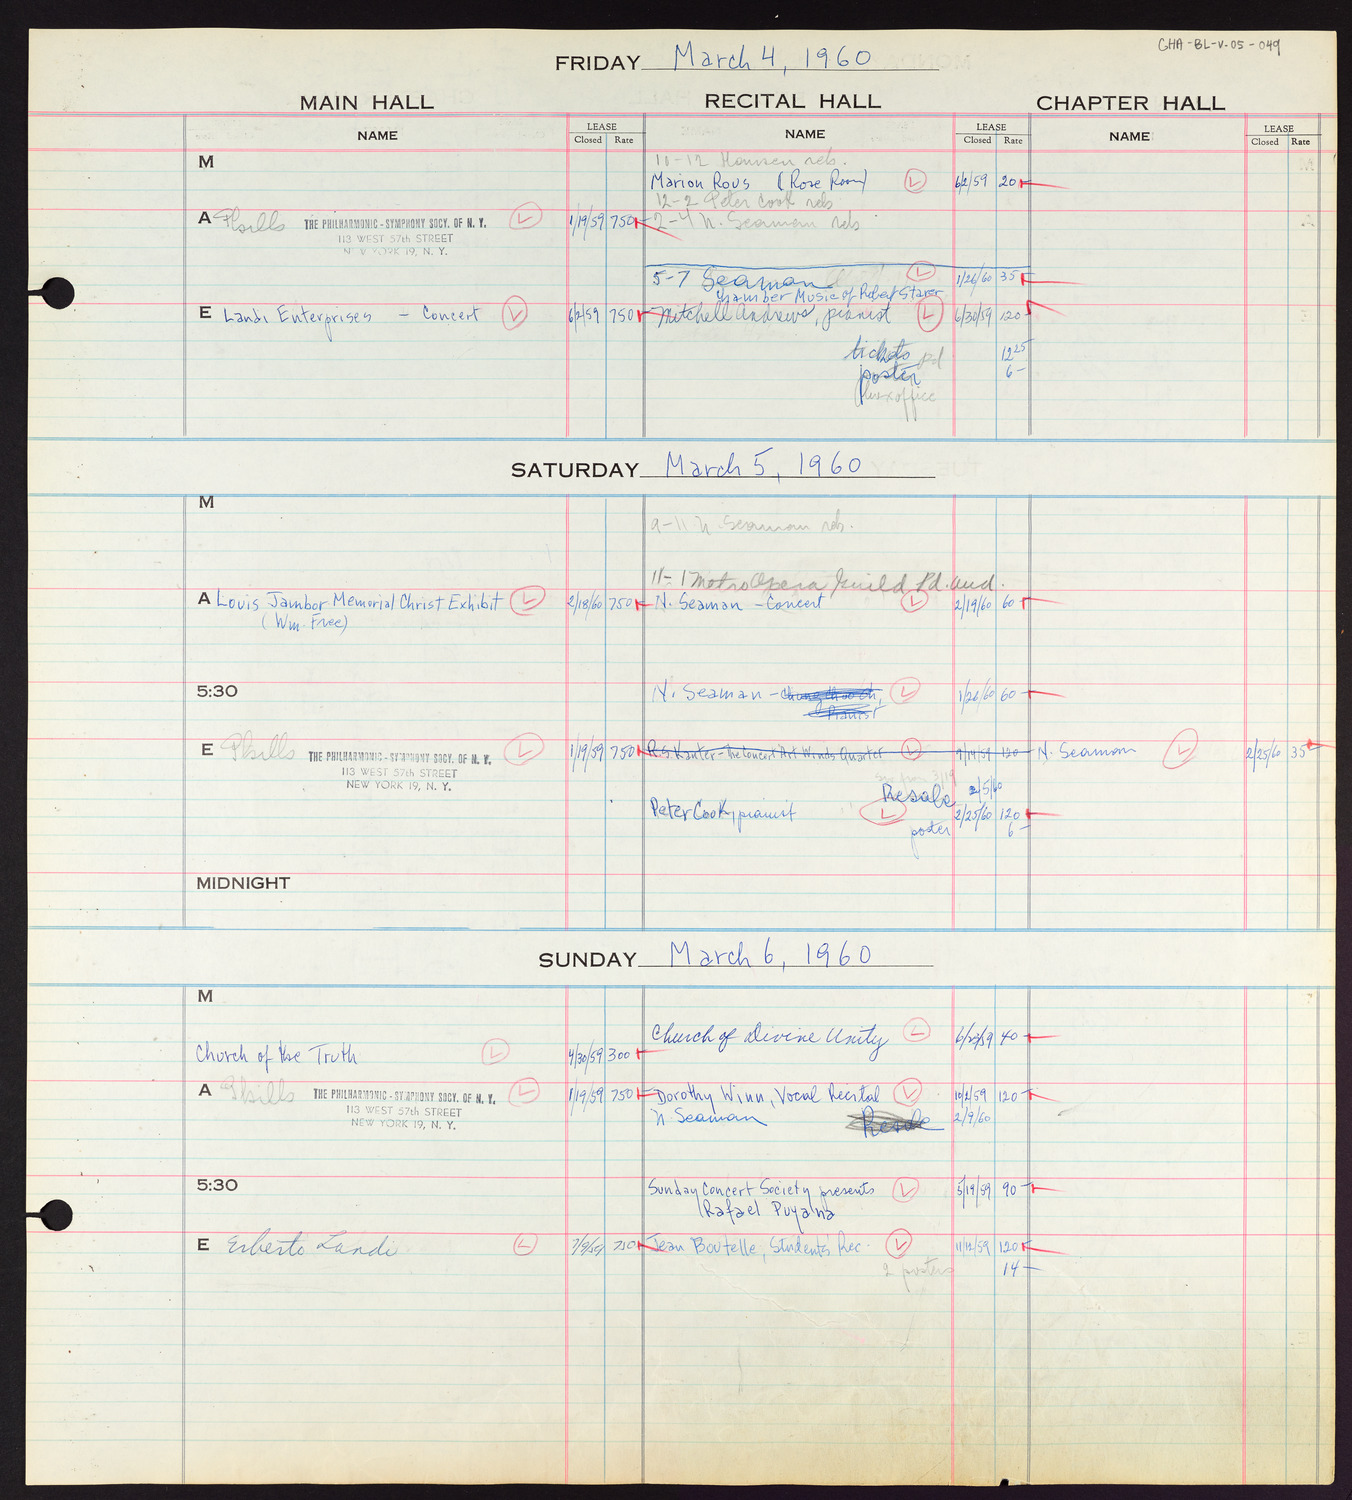 CHA-BL-V-05-049
FRIDAY March 4, 1960
MAIN HALL RECITAL HALL CHAPTER HALL
NAME LEASE Closed Rate NAME LEASE Closed Rate NAME LEASE Closed Rate
M
10-12 reh.
Marion Rous (Rose Room) 6/2/59 20
12-2 Peter Cook reh
A Phills THE PHILHARMONIC-SYMPHONY SOCY. OF N. Y. 1/19/59 750 2-4 N. Seaman reh
113 WEST 57th STREET
NEW YORK 19, N. Y.
5-7 Seaman 1/26/60 35
Chamber Music of Robert Starer
E Landi Enterprises - Concert 6/2/59 750 Mitchell Andrews, pianist 6/30/59 120
tickets pd 12 25
poster 6-
boxoffice
SATURDAY March 5, 1960
M
9-11 N. Seaman reh.
11-1 Metro Opera Guild Pd. aud.
A Louis Jambor Memorial Christ Exhibit 2/18/60 750 N. Seaman - Concert 2/19/60 60
(Wm. Free)
5:30 N. Seaman - 1/26/60 60
Pianist
E Phills THE PHILHARMONIC-SYMPHONY SOCY. OF N. Y. 1/19/59 750 R.S. Kanter - The Concert Art Winds Quartet 9/14/59 120 N. Seaman 2/25/60 35
113 WEST 57th STREET
NEW YORK 19, N. Y.
Resale 2/5/60
Peter Cook, pianist 2/25/60 120
poster 6-
MIDNIGHT
SUNDAY March 6, 1960
M
Church of Divine Unity 6/23/59 40
Church of the Truth 4/30/59 300
A Phills THE PHILHARMONIC-SYMPHONY SOCY. OF N. Y. 1/19/59 750 Dorothy Winn, Vocal Recital 10/2/59 120
113 WEST 57th STREET N. Seaman Resale 2/9/60
NEW YORK 19, N. Y.
5:30 Sunday Concert Society presents 5/19/59 90
Rafael Puyana
E Erberto Landi 7/9/59 750 Jean Boutelle, Students Rec. 11/12/59 120
2 posters 14-